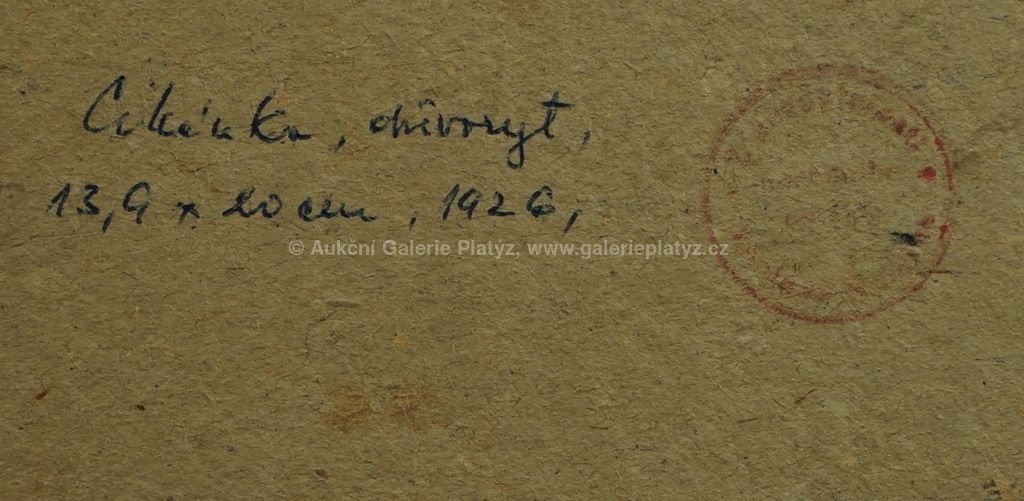 Cikánka, dřívoryt,
13,9 x 20 cm, 1926,
© Aukční Galerie Platýz, www.galerieplatyz.cz